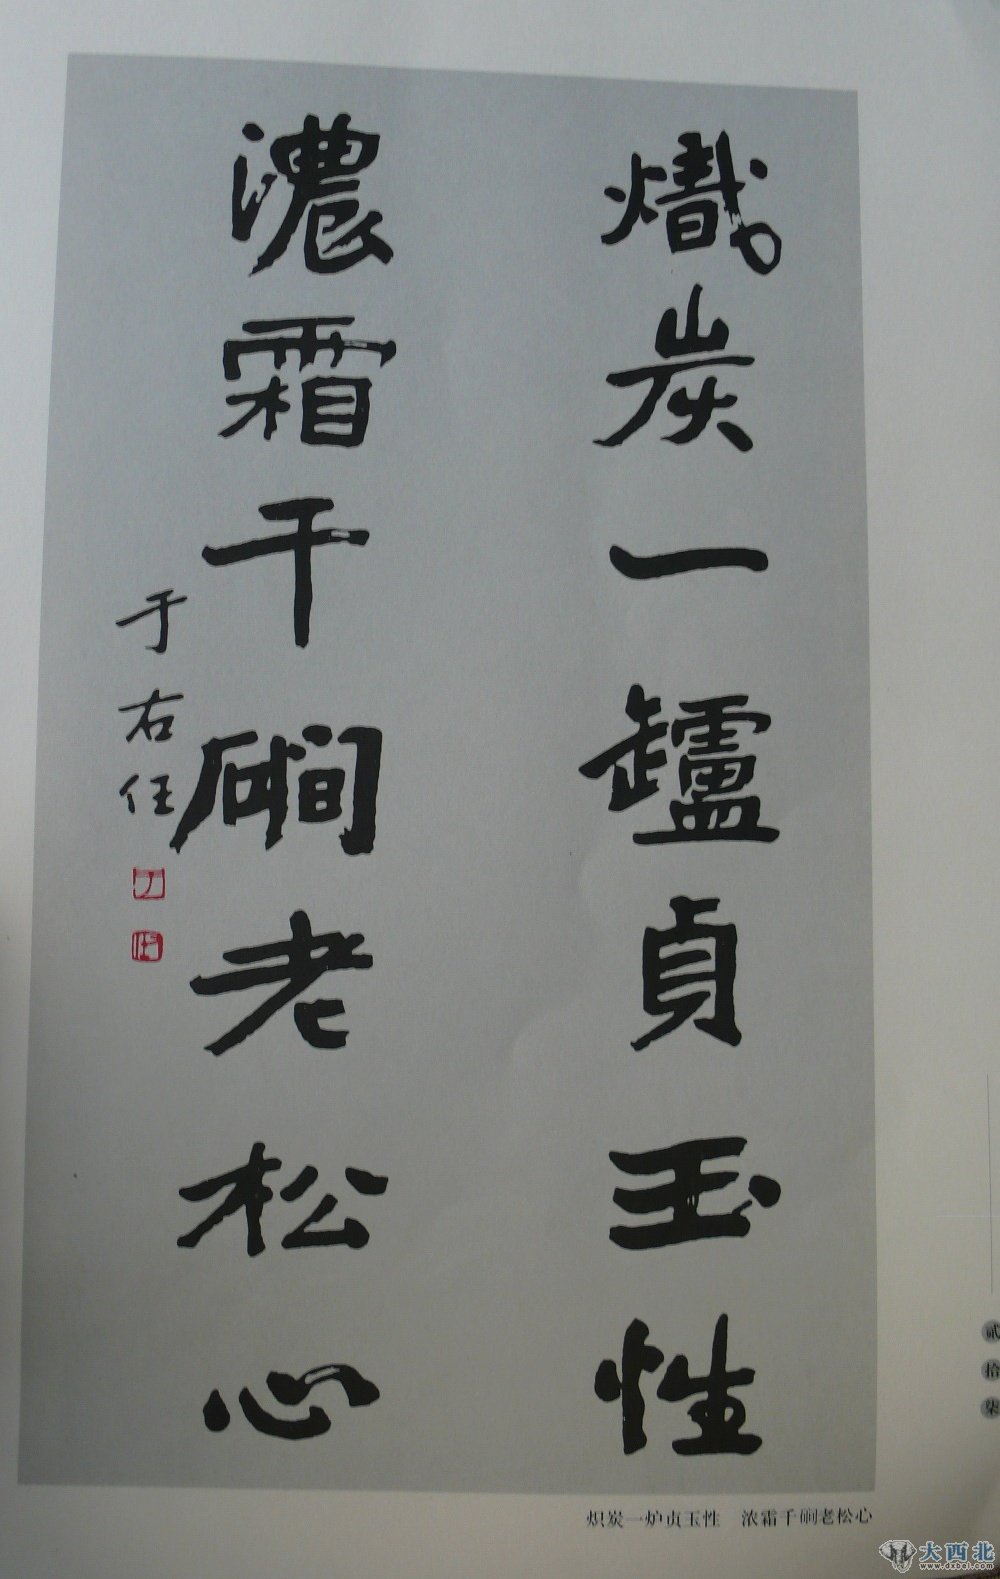 熾炭一罏貞玉性
濃霜千磵老松心
于右任
炽炭一炉贞玉性　浓霜千磵老松心
贰拾柒
大西北
www.dxbei.com